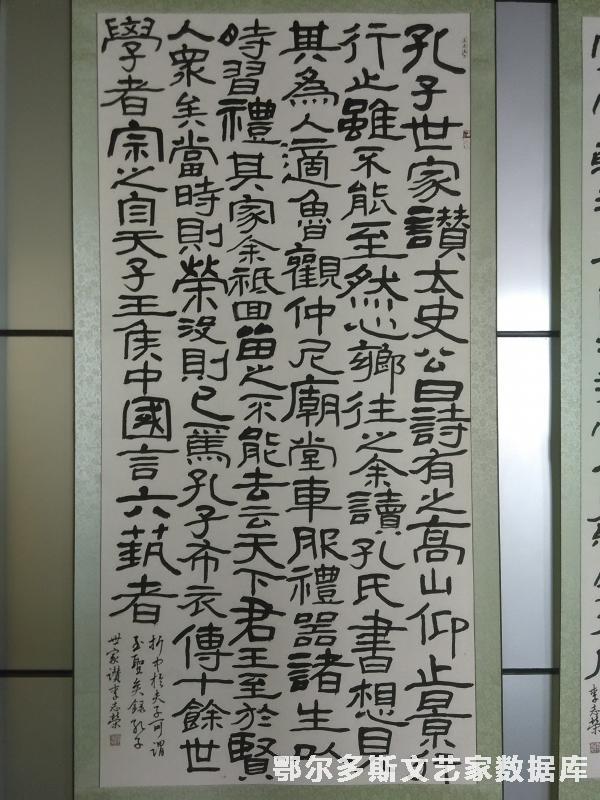 孔子世家讚太史公曰詩有之高山仰止景行
行止雖不能至然心鄉往之余讀孔氏書想見
其為人適魯觀仲尼廟堂車服禮器諸生以
時習禮其家余祗回留之不能去云天下君王至於賢
人眾矣當時則榮沒則已焉孔子布衣傳十餘世
學者宗之自天子王侯中國言六藝者
折中於夫子可謂
至聖矣錄孔子
世家讚李志榮
李志榮
鄂尔多斯文艺家数据库